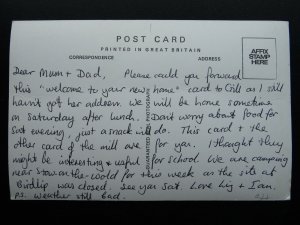 POST CARD
PRINTED IN GREAT BRITAIN
CORRESPONDENCE
ADDRESS
AFFIX
STAMP
HERE
Dear Mum + Dad, Please could you forward
this "welcome to your new home" card to Gill as I still
havn't got her address. We will be home sometime
on Saturday after lunch. Don't worry about food for
Sat evening, just a snack will do. This card + the
other card of the mill are for you. I thought they
might be interesting + useful for school. We are camping
near Stow-on-the-Wold for this week as the site at
Birdlip was closed. See you Sat. Love Liz + Ian.
PS. Weather still bad.